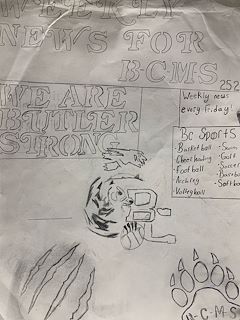 WEEKLY
NEWS FOR
B-C-M-S
252
WE ARE
BUTLER
STRONG
Weekly news
every friday!
BC Sports
·Basketball ·Swim
·Cheerleading ·Golf
·Football ·Soccer
·Archery ·Baseba
·Volleyball ·Softba
B-C-M-S